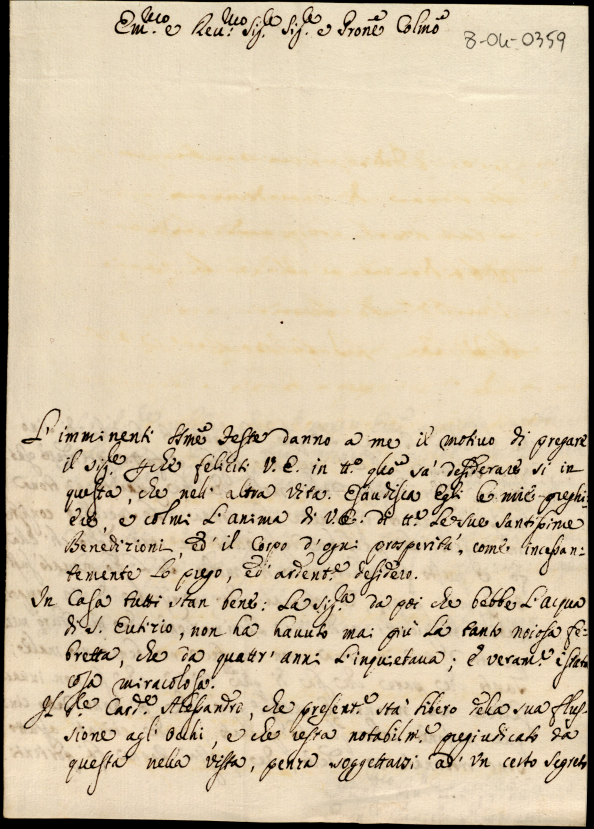 Em.mo e Rev.mo Sig.r Sig.r e Prone Colmo
8-04-0359
L'imminenti SSme Feste danno a me il motivo di pregare
il Sig.re pche feliciti V. E. in tto qllo sà desiderare si in
questa, che nell'altra vita. Esaudisca Egli le mie preghi=
ere, e colmi L'anima di V.E. di tte Le sue Santissime
Benedizioni, ed' il Corpo d'ogni prosperità, come incessan=
temente Lo prego, ed' ardent.e desidero.
In Casa tutti stan bene: La Sig.ra da poi che bebbe L'acqua
di S. Eutizio, non ha havuto mai più La tanto noiosa fe=
bretta, che da quattr'anni L'inquietava; è veram.e è stata
cosa miracolosa.
Card.e Alesandro, che present.e stà libero della sua flus=
sione agl'Occhi, e che resta notabilm.e pregiudicato da
questa nella vista, pensa soggettarsi ad' un certo segreto